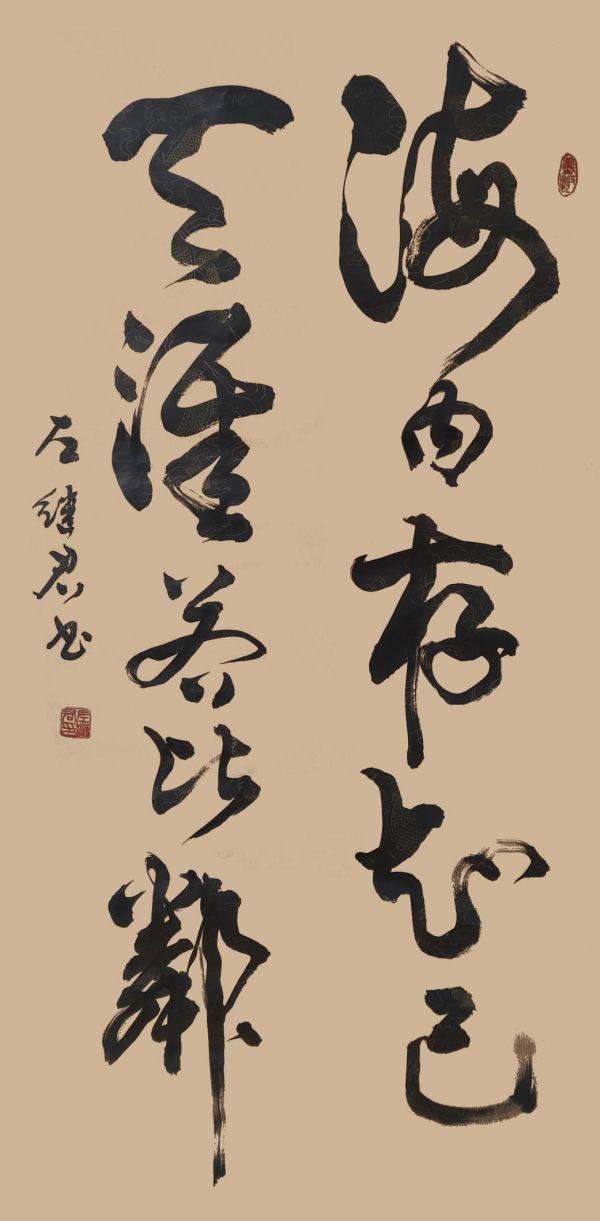 海内存知己
天涯若比鄰
左继君书